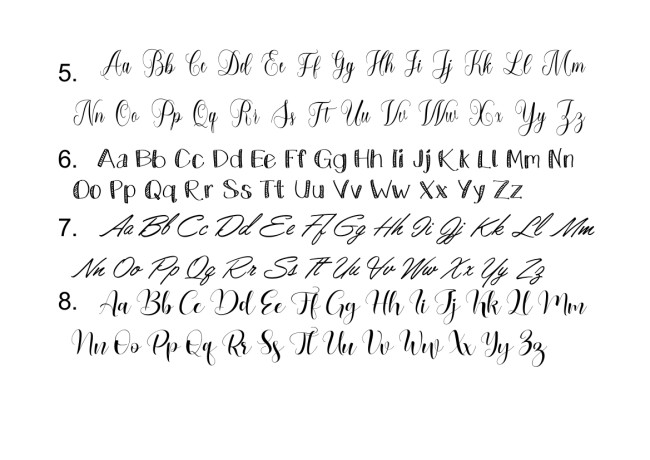 5. Aa Bb Cc Dd Ee Ff Gg Hh Ii Jj Kk Ll Mm
Nn Oo Pp Qq Rr Ss Tt Uu Vv Ww Xx Yy Zz
6. Aa Bb Cc Dd Ee Ff Gg Hh Ii Jj Kk Ll Mm Nn
Oo Pp Qq Rr Ss Tt Uu Vv Ww Xx Yy Zz
7. Aa Bb Cc Dd Ee Ff Gg Hh Ii Jj Kk Ll Mm
Nn Oo Pp Qq Rr Ss Tt Uu Vv Ww Xx Yy Zz
8. Aa Bb Cc Dd Ee Ff Gg Hh Ii Jj Kk Ll Mm
Nn Oo Pp Qq Rr Ss Tt Uu Vv Ww Xx Yy Zz